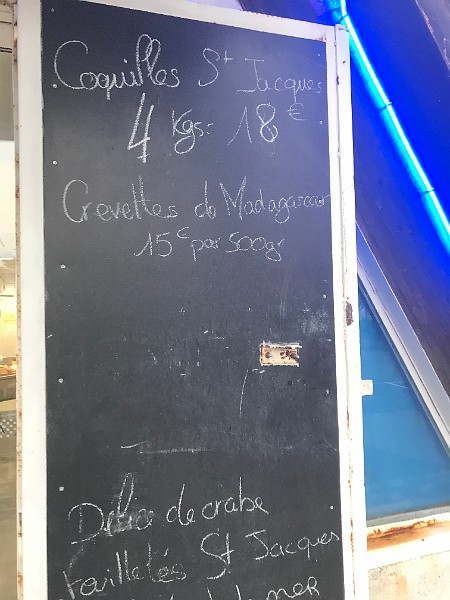 Coquilles St Jacques
4 Kgs = 18 €
Crevettes de Madagascar
15€ par 500gr
Délice de crabe
Feuilletés St Jacques
mer